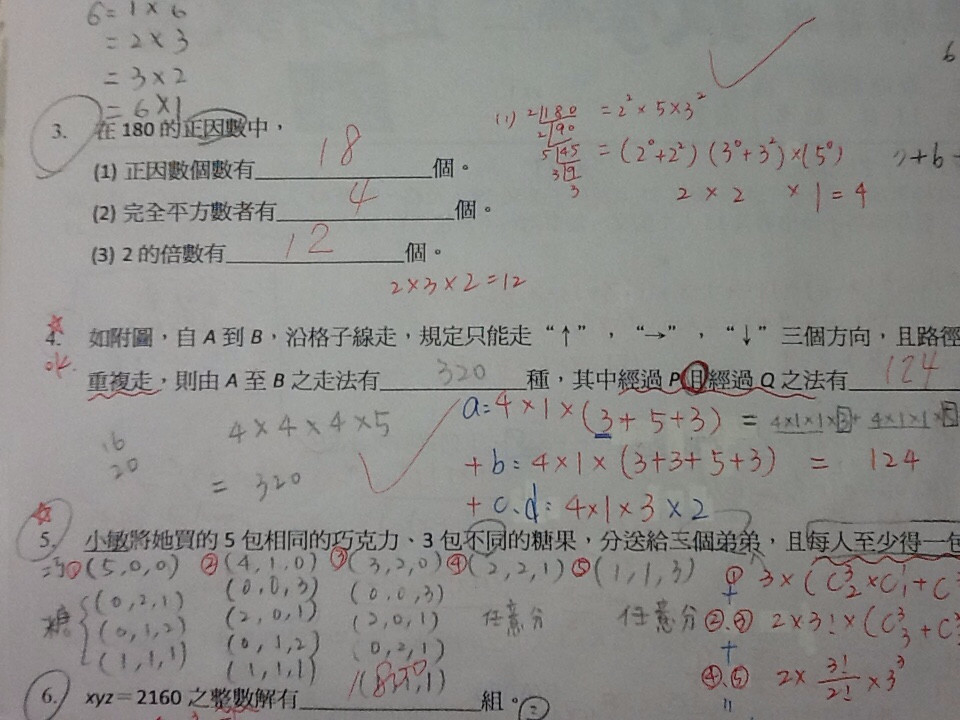 6 = 1 × 6
= 2 × 3
= 3 × 2
= 6 × 1
3. 在 180 的正因數中，
(1) 正因數個數有 18 個。
(2) 完全平方數者有 4 個。
(3) 2 的倍數有 12 個。
2×3×2=12
(1) 2|180 = 2² × 5 × 3²
2|90
5|45 = (2⁰+2²) (3⁰+3²)×(5⁰)
3|9
3
2 × 2 × 1 = 4
4. 如附圖，自 A 到 B，沿格子線走，規定只能走 “↑”，“→”，“↓” 三個方向，且路徑
重複走，則由 A 至 B 之走法有 320 種，其中經過 P 且經過 Q 之法有 124
16
20
4 × 4 × 4 × 5
= 320
a: 4 × 1 × (3 + 5 + 3) =
+ b: 4 × 1 × (3+3+5+3) = 124
+ c、d: 4×1×3×2
5. 小敏將她買的 5 包相同的巧克力、3 包不同的糖果，分送給三個弟弟，且每人至少得一包
① (5,0,0) ② (4,1,0) ③ (3,2,0) ④ (2,2,1) ⑤ (1,1,3)
糖 (0,2,1) (0,0,3) (0,0,3)
(0,1,2) (2,0,1) (2,0,1) 任意分 任意分
(1,1,1) (0,1,2) (0,2,1)
(1,1,1)
① 3 × (C³₂ × C¹₁ + C³
+
2×3! × (C³₃ + C³
+
④、⑤ 2× 3!/2! ×3³
6. xyz＝2160 之整數解有 組。